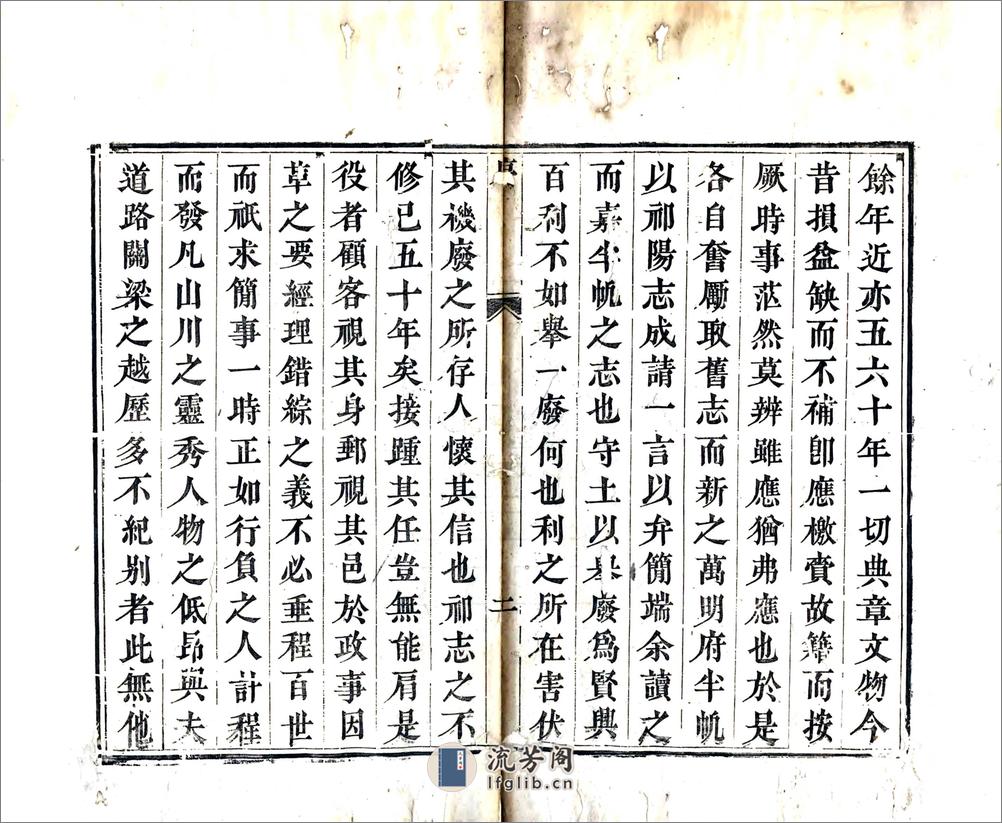 餘年近亦五六十年一切典章文物今
昔損益缺而不補卽應檄賫故籍而按
厥時事茫然莫辨雖應猶弗應也於是
各自奮厲取舊志而新之萬明府半帆
以祁陽志成請一言以弁簡端余讀之
而嘉半帆之志也守土以舉廢爲賢興
百利不如舉一廢何也利之所在害伏
二
其機廢之所存人懷其信也祁志之不
修已五十年矣接踵其任豈無能肩是
役者顧客視其身郵視其邑於政事因
草之要經理錯綜之義不必垂程百世
而祇求簡事一時正如行負之人計程
而發凡山川之靈秀人物之低昂與夫
道路關梁之越歷多不紀别者此無他
流芳阁
lfglib.cn